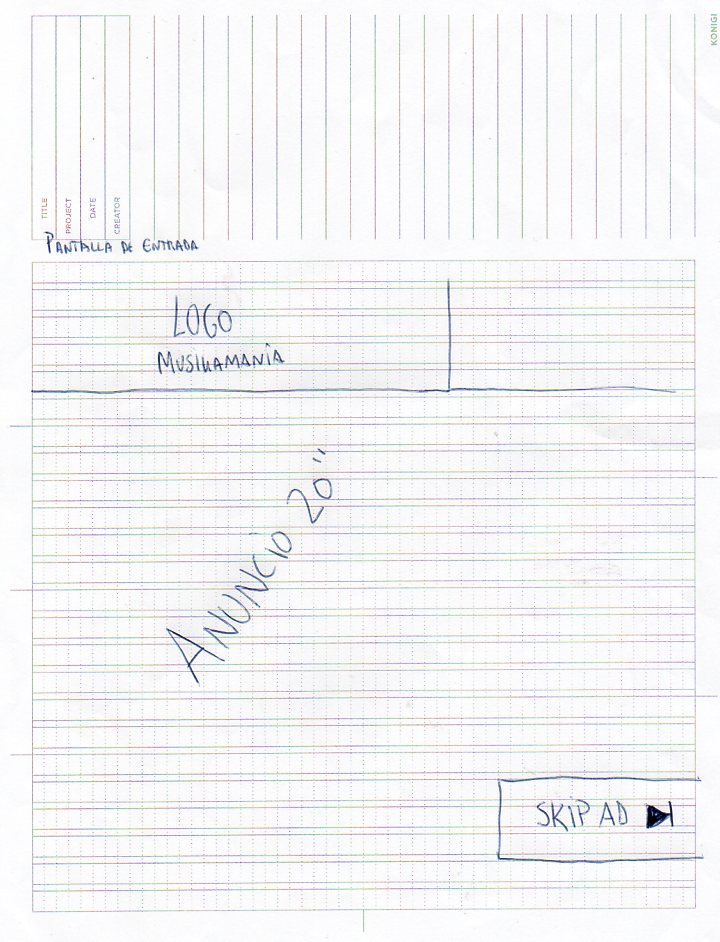 KONIGI
TITLE
PROJECT
DATE
CREATOR
PANTALLA DE ENTRADA
LOGO
MUSIKAMANIA
ANUNCIO 20"
SKIP AD